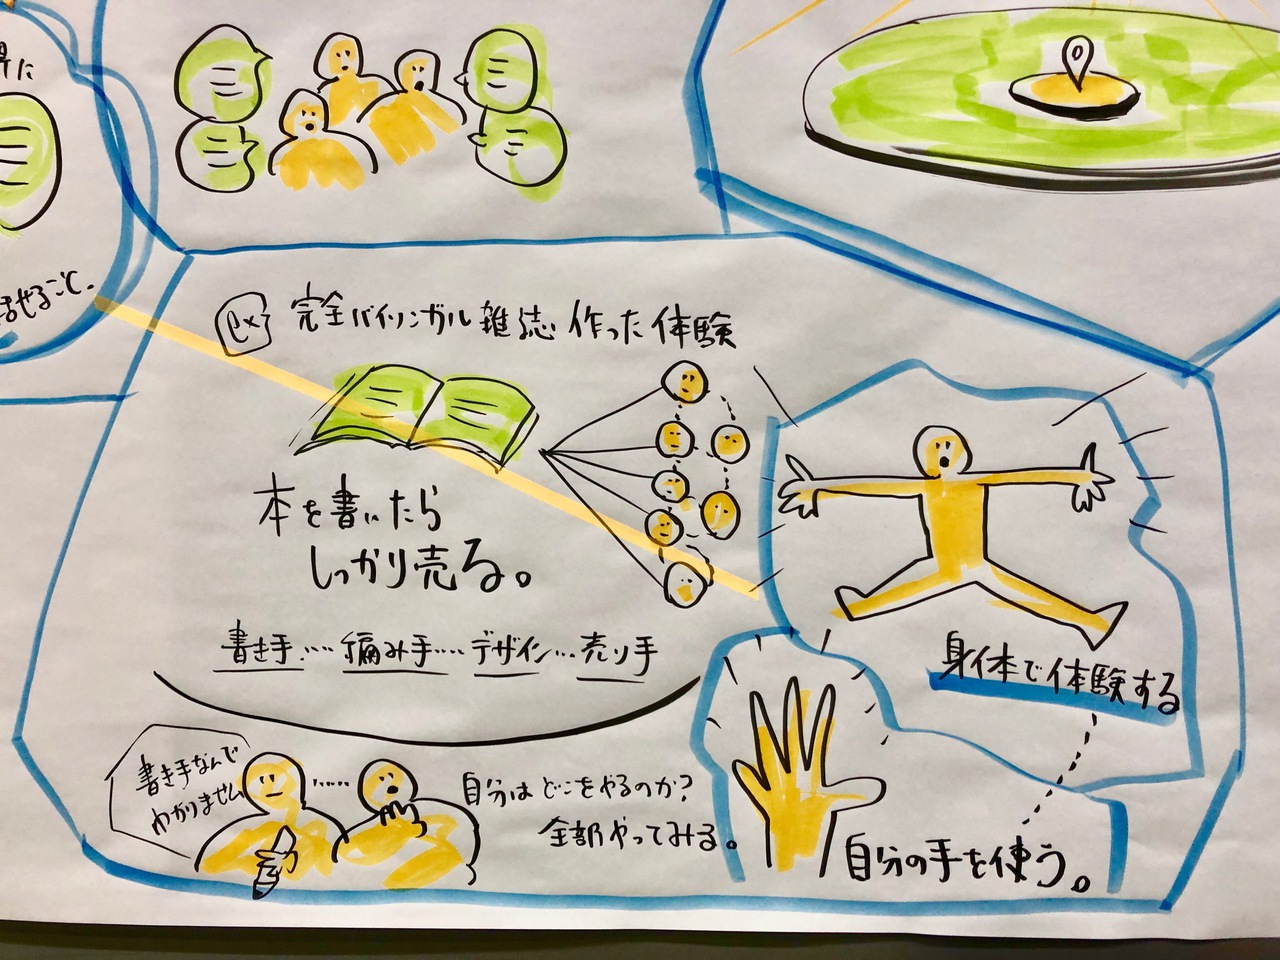 に
話せること。
ex 完全バイリンガル雑誌 作った体験
本を書いたら
しっかり売る。
書き手….. 編み手….. デザイン… 売り手
書き手なんで
わかりません
……
自分はどこをやるのか?
全部やってみる。
身体で体験する
自分の手を使う。